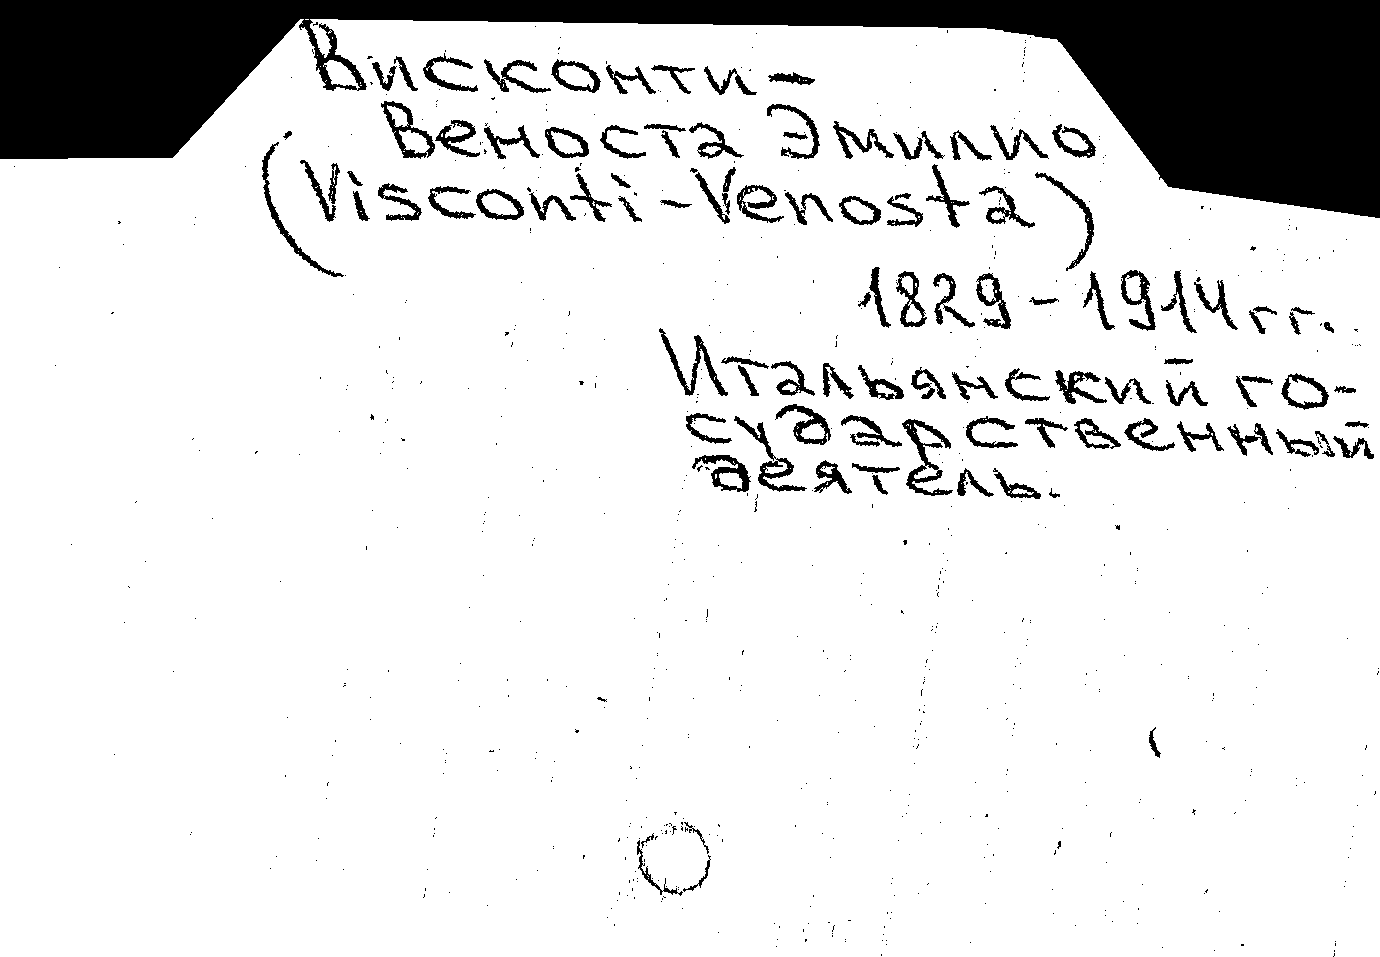 Висконти-
Веноста Эмилио
(Visconti-Venosta)
1829-1914гг.
Итальянский го-
сударственный
деятель.